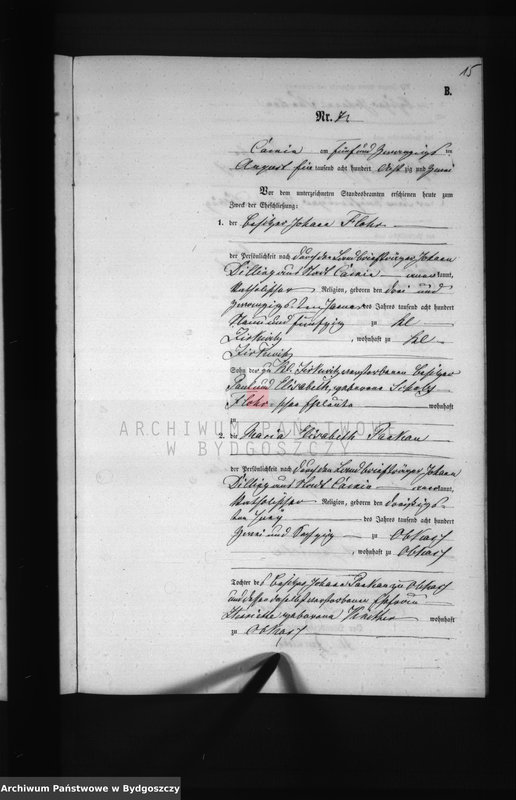 15
B.
Nr. 72
Camin am fünf und zwanzigsten
August tausend acht hundert acht zig und zwei
Vor dem unterzeichneten Standesbeamten erschienen heute zum
Zweck der Eheschließung:
1. der Besitzer Johann Flohr
der Persönlichkeit nach durch den Landbriefträger Johann
aus Stadt Camin anerkannt,
katholischer Religion, geboren den drei und
zwanzigsten Januar des Jahres tausend acht hundert
neun und fünfzig zu Kl
Zirkwitz, wohnhaft zu Kl
Zirkwitz
Sohn des zu Kl. Zirkwitz verstorbenen Besitzer
Paul und Elisabeth, geborene Scholz
Flohr-schen Eheleute wohnhaft
zu
ARCHIWUM PAŃSTWOWE
W BYDGOSZCZY
2. die Maria Elisabeth
der Persönlichkeit nach durch den Landbriefträger Johann
aus Stadt Camin anerkannt,
katholischer Religion, geboren den dreißigs-
ten Juny des Jahres tausend acht hundert
zwei und sechzig zu Obkas
, wohnhaft zu Obkas
Tochter des Besitzers Johann zu Obkas
und dessen daselbst verstorbenen Ehefrau
geborene wohnhaft
zu Obkas
Archiwum Państwowe w Bydgoszczy